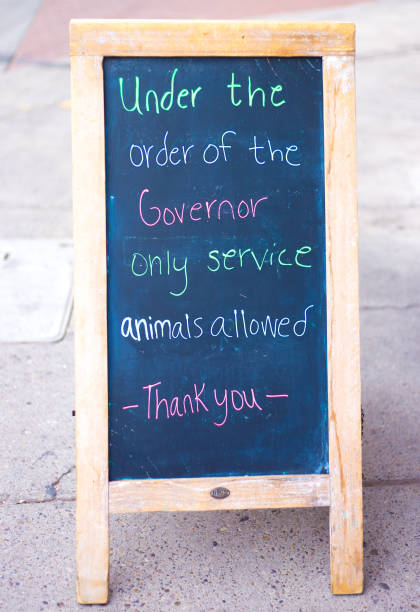 Under the
order of the
Governor
only service
animals allowed
-Thank you-